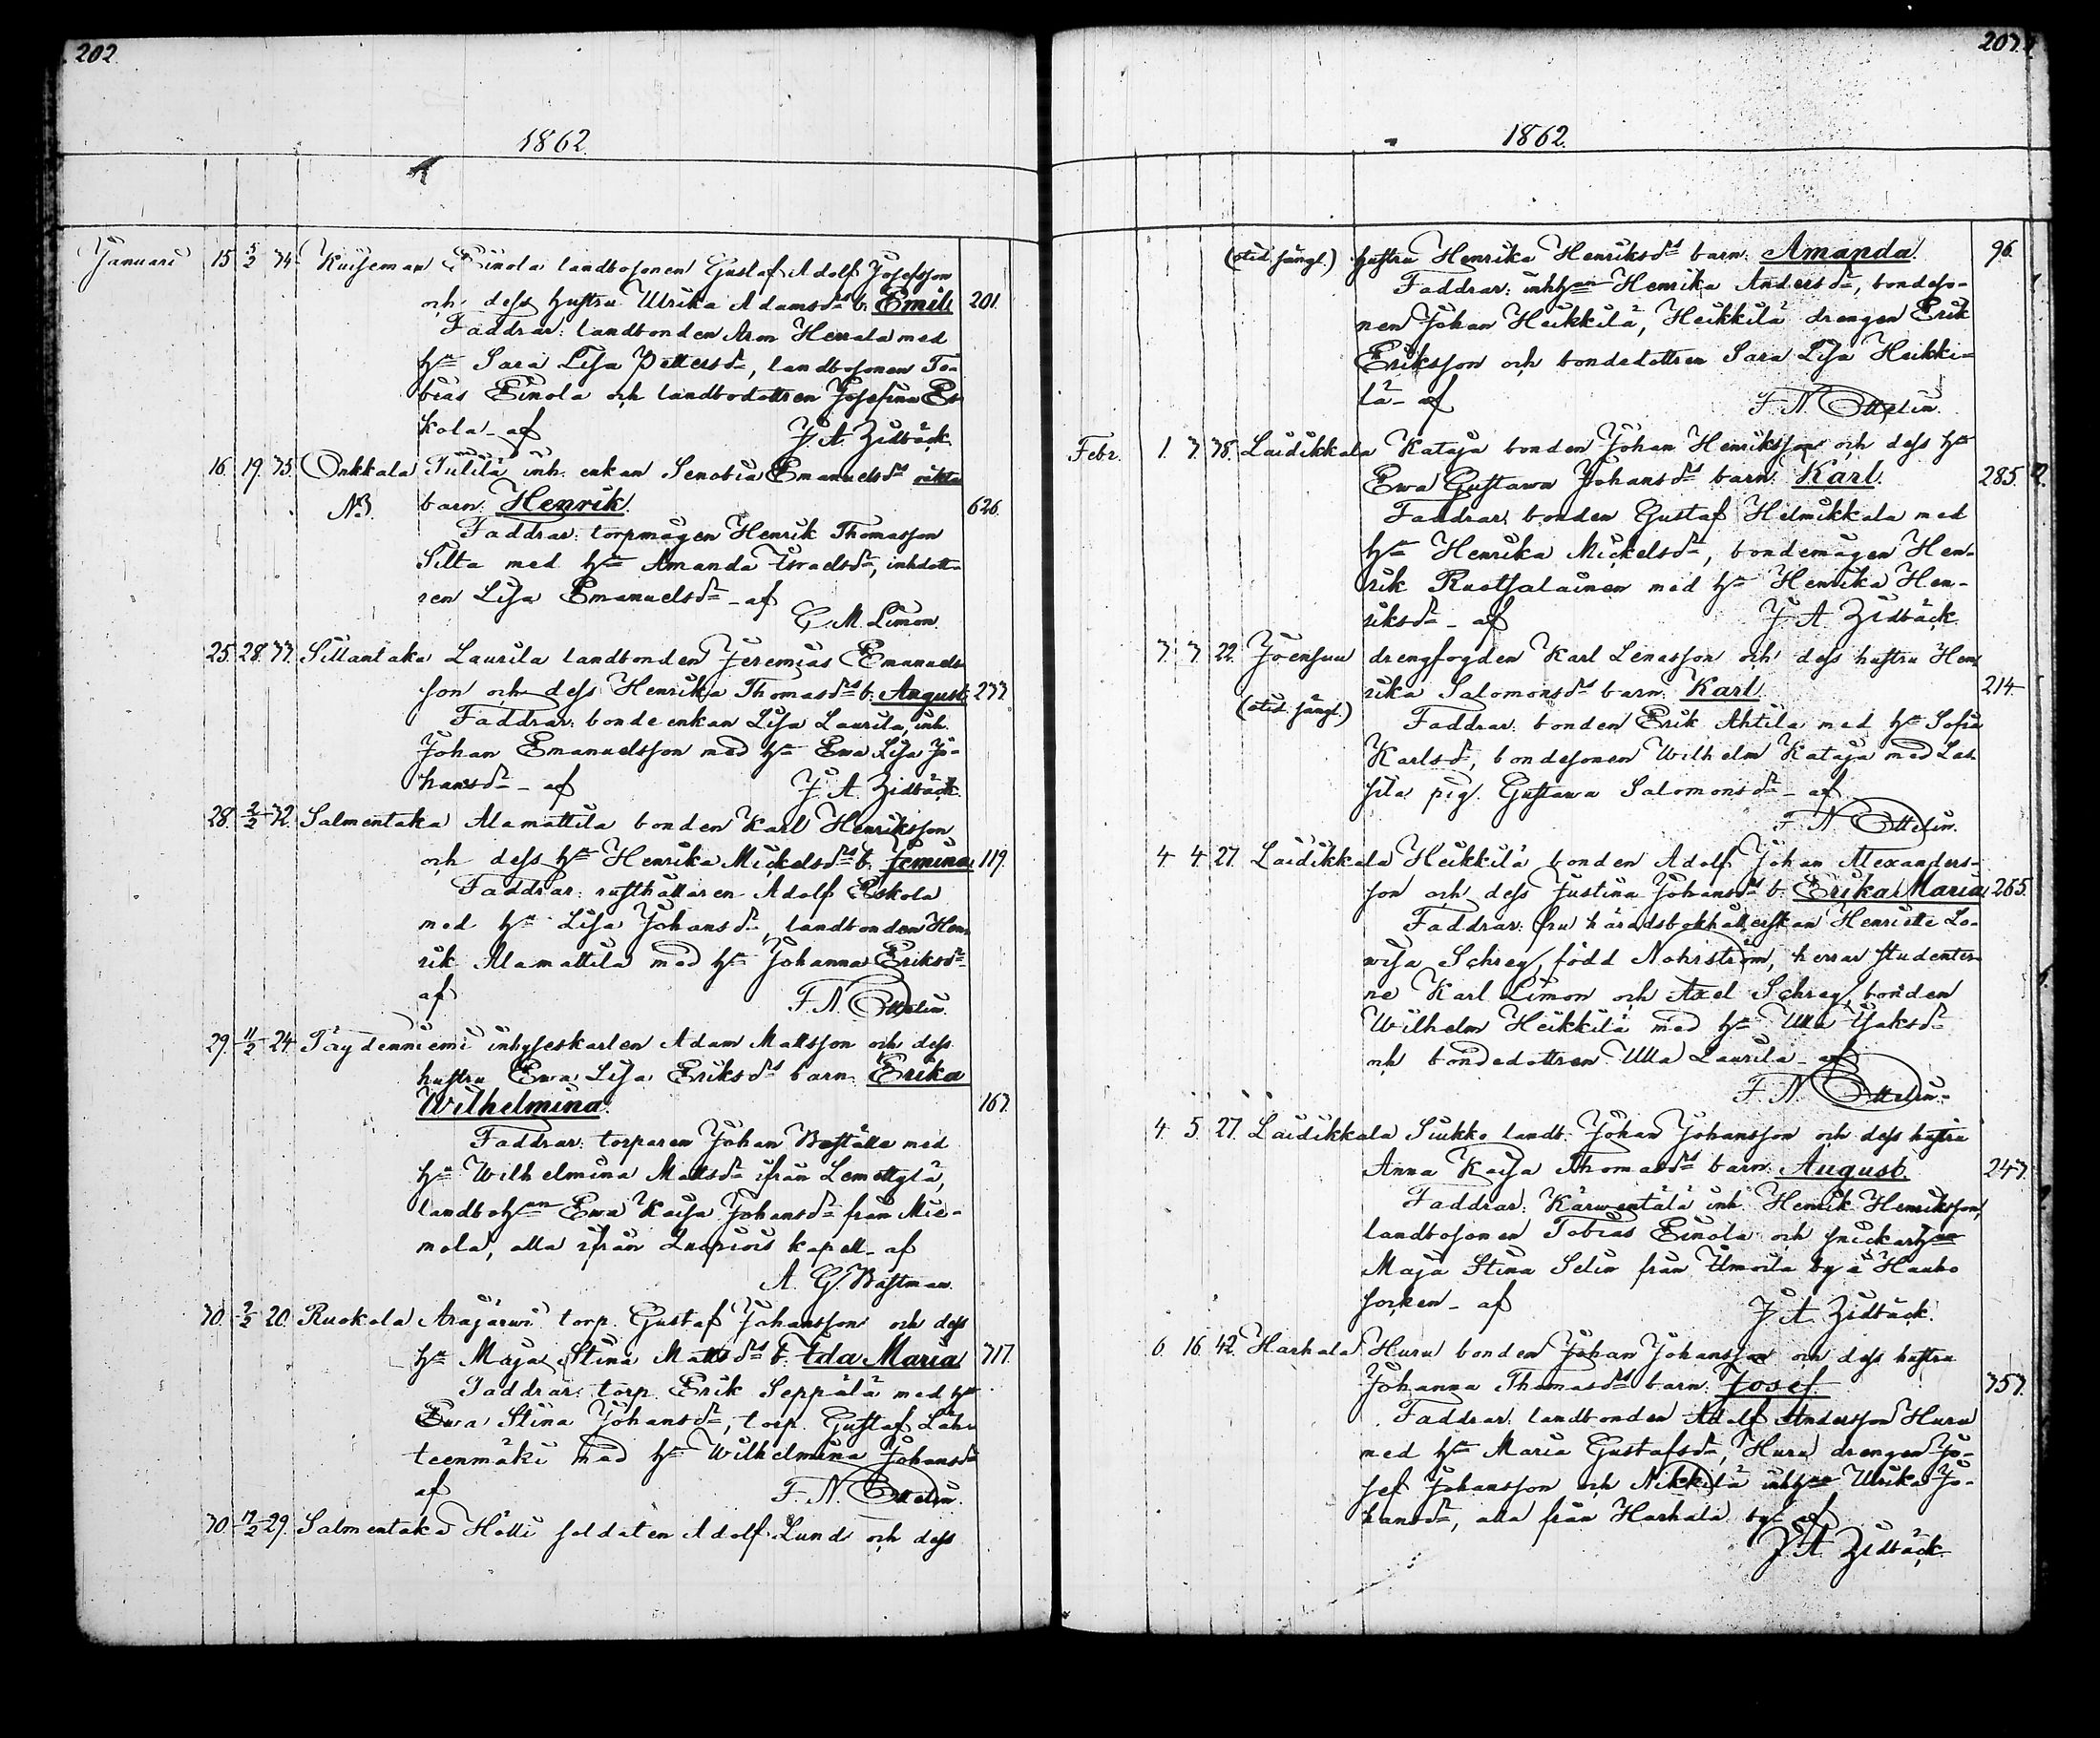 202.
1862.
Januari 15 5/2 34 Kuiseman Einola landbosonen Gustaf Adolf Josefsson
och dess hustru Ulrika Adamsdrs b. Emil 201.
Faddrar: landbonden Aron Herrala med
hu Sara Lisa Pettersdr, landbosonen To-
bias Einola och landbodottren Josefina Es-
kola - af J. A. Zidbäck.
16 19. 35. Onkkala Tulila inh. enkan Senobia Emanuelsdrs oäkta
NB. barn Henrik. 626.
Faddrar: torpmågen Henrik Thomasson
Silta med hu Amanda Israelsdr, inhdott-
ren Lisa Emanuelsdr - af
C. M. Limon.
25. 28. 33. Sillantaka Laurila landbonden Jeremias Emanuels-
son och dess Henrika Thomasdrs b. August. 233.
Faddrar: bonde enkan Lisa Laurila, inh.
Johan Emanuelsson med hu Ewa Lisa Jo-
hansdr - af J. A. Zidbäck.
28. 2/2 32. Salmentaka Alamattila bonden Karl Henriksson
och dess hu Henrika Mickelsdrs b. Jemina 119.
Faddrar: rusthållaren Adolf Eskola
med hu Lisa Johansdr, landbonden Hen-
rik Alamattila med hu Johanna Eriksdr
af F. N. Ottelin.
29. 11/2 24 Täydenniemi inhyseskarlen Adam Mattsson och dess
hustru Ewa Lisa Eriksdrs barn Erika
Wilhelmina. 163.
Faddrar: torparen Johan Boställe med
hu Wilhelmina Mattsdr ifrån Lemettylä,
landbohun Ewa Kaisa Johansdr från Mie-
mola, alla ifrån Luopiois kapell - af
A. G. Bastman.
30. 2/2 20. Ruokola Arajärwi torp. Gustaf Johansson och dess
hu Maja Stina Mattsdrs b. Ida Maria 317.
Faddrar: torp. Erik Seppälä med hu
Ewa Stina Johansdr, torp. Gustaf Läh-
teenmäki med hu Wilhelmina Johansdr
af F. N. Ottelin.
30. 17/2 29. Salmentaka Hölli soldaten Adolf Lund och dess
203.
1862.
hustru Henrika Henriksdrs barn: Amanda. 96.
Faddrar: inhhun Henrika Andersdr, bondeso-
nen Johan Heikkilä, Heikkilä drengen Erik
Eriksson och bondedottren Sara Lisa Heikki-
lä - af F. N. Ottelin.
Febr. 1. 3. 38. Laidikkala Kataja bonden Johan Henriksson och dess hu
Ewa Gustawa Johansdrs barn: Karl. 285.
Faddrar: bonden Gustaf Helmikkala med
hu Henrika Mickelsdr, bondemågen Hen-
rik Ruotsalainen med hu Henrika Hen-
riksdr - af J. A. Zidbäck.
3. 3. 22. Joensuu drengfogden Karl Lenasson och dess hustru Hen-
rika Salomonsdrs barn: Karl. 214.
Faddrar: bonden Erik Ahtila med hu Sofia
Karlsdr, bondesonen Wilhelm Kataja med Las-
sila pig. Gustawa Salomonsdr - af
F. N. Ottelin.
4 4. 27. Laidikkala Heikkilä bonden Adolf Johan Alexanders-
son och dess Justina Johansdrs b. Erika Maria 265.
Faddrar: fru häradsbokhållerskan Henriette Lo-
wisa Schrey, född Nohrström, herrar studenter-
ne Karl Limon och Axel Schrey, bonden
Wilhelm Heikkilä med hu Ulla Isaksdr
och bondedottren Ulla Laurila - af
F. N. Ottelin.
4. 5. 27. Laidikkala Siukko landb. Johan Johansson och dess hustru
Anna Kaisa Thomasdrs barn: August. 243.
Faddrar: Kärwentälä inh. Henrik Henriksson,
landbosonen Tobias Einola och snickarhun
Maja Stina Selin från Ilmoila by i Hauho
socken - af J. A. Zidbäck.
6 16 42. Harhala Huru bonden Johan Johansson och dess hustru
Johanna Thomasdrs barn: Josef. 353.
Faddrar: landbonden Adolf Andersson Huru
med hu Maria Gustafsdr, Huru drengen Jo-
sef Johansson och Nikkilä inhhun Ulrika Jo-
hansdr, alla från Harhala by - af
J. A. Zidbäck.